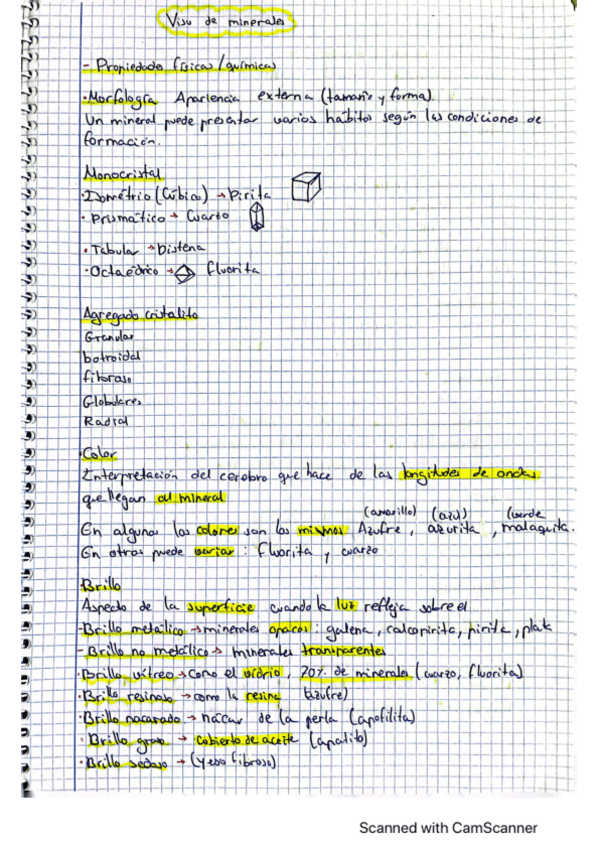 Visu de minerales
- Propiedades físicas/químicas
·Morfología Apariencia externa (tamaño y forma)
Un mineral puede presentar varios habitos según las condiciones de
formación.
Monocristal
·Isométrio (Cúbico) → Pirita
· Prismático → Cuarzo
· Tabular → Distena
· Octaédrico → Fluorita
Agregado cristalito
Granular
botroidal
fibroso
Globulares
Radial
·Color
Interpretación del cerebro que hace de las longitudes de ondas
que llegan al mineral
(amarillo) (azul) (verde
En algunos los colores son los mismos Azufre, azurita, malaquita.
En otros puede variar: fluorita y cuarzo
Brillo
Aspecto de la superficie cuando la luz refleja sobre el
-Brillo metálico → minerales opacos: galena, calcopirita, pirita, plata
- Brillo no metálico → minerales transparentes
·Brillo vítreo → como el vidrio, 70% de minerales (cuarzo, fluorita)
·Brillo resinoso → como la resina (azufre)
·Brillo nacarado → nácar de la perla (apofilita)
· Brillo graso → cobierto de aceite (apatito)
·Brillo sedoso → (yeso fibroso)
Scanned with CamScanner